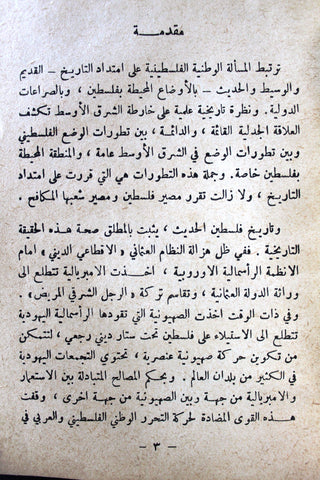 مقدمــــة
ترتبط المسألة الوطنية الفلسطينية على امتداد التاريخ – القديم
والوسيط والحديث – بالأوضاع المحيطة بفلسطين ، وبالصراعات
الدولية . ونظرة تاريخية علمية على خارطة الشرق الأوسط تكشف
العلاقة الجدلية القائمة ، والدائمة ، بين تطورات الوضع الفلسطيني
وبين تطورات الوضع في الشرق الأوسط عامة ، والمنطقة المحيطة
بفلسطين خاصة . وجملة هذه التطورات هي التي قررت على امتداد
التاريخ ، ولا زالت تقرر مصير فلسطين ومصير شعبها المكافح .
وتاريخ فلسطين الحديث ، يثبت بالمطلق صحة هذه الحقيقة
التاريخية . ففي ظل هزالة النظام العثماني «الاقطاعي الديني» امام
الانظمة الرأسمالية الاوروبية ، اخذت الامبريالية تتطلع الى
وراثة الدولة العثمانية ، وتقاسم تركة «الرجل الشرقي المريض» .
وفي ذات الوقت اخذت الصهيونية التي تقودها الرأسمالية اليهودية
تتطلع الى الاستيلاء على فلسطين تحت ستار ديني رجعي ، لتتمكن
من تكوين حركة صهيونية عنصرية ، تحتوي التجمعات اليهودية
في الكثير من بلدان العالم . وبحكم المصالح المتبادلة بين الاستعمار
والامبريالية من جهة وبين الصهيونية من جهة اخرى ، وقفت
هذه القوى المضادة لحركة التحرر الوطني الفلسطيني والعربي في
– ٣ –